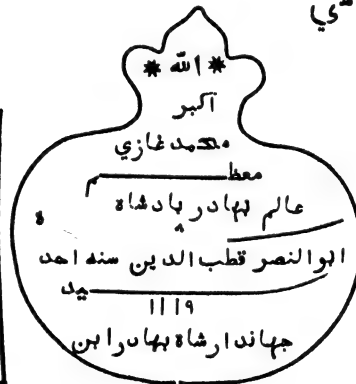 * الله *
اكبر
محمد غازي
معظم
عالم بهادر بادشاة
ابوالنصر قطب الدين سنه احد
١١١٩
جهاندار شاة بهادر ابن